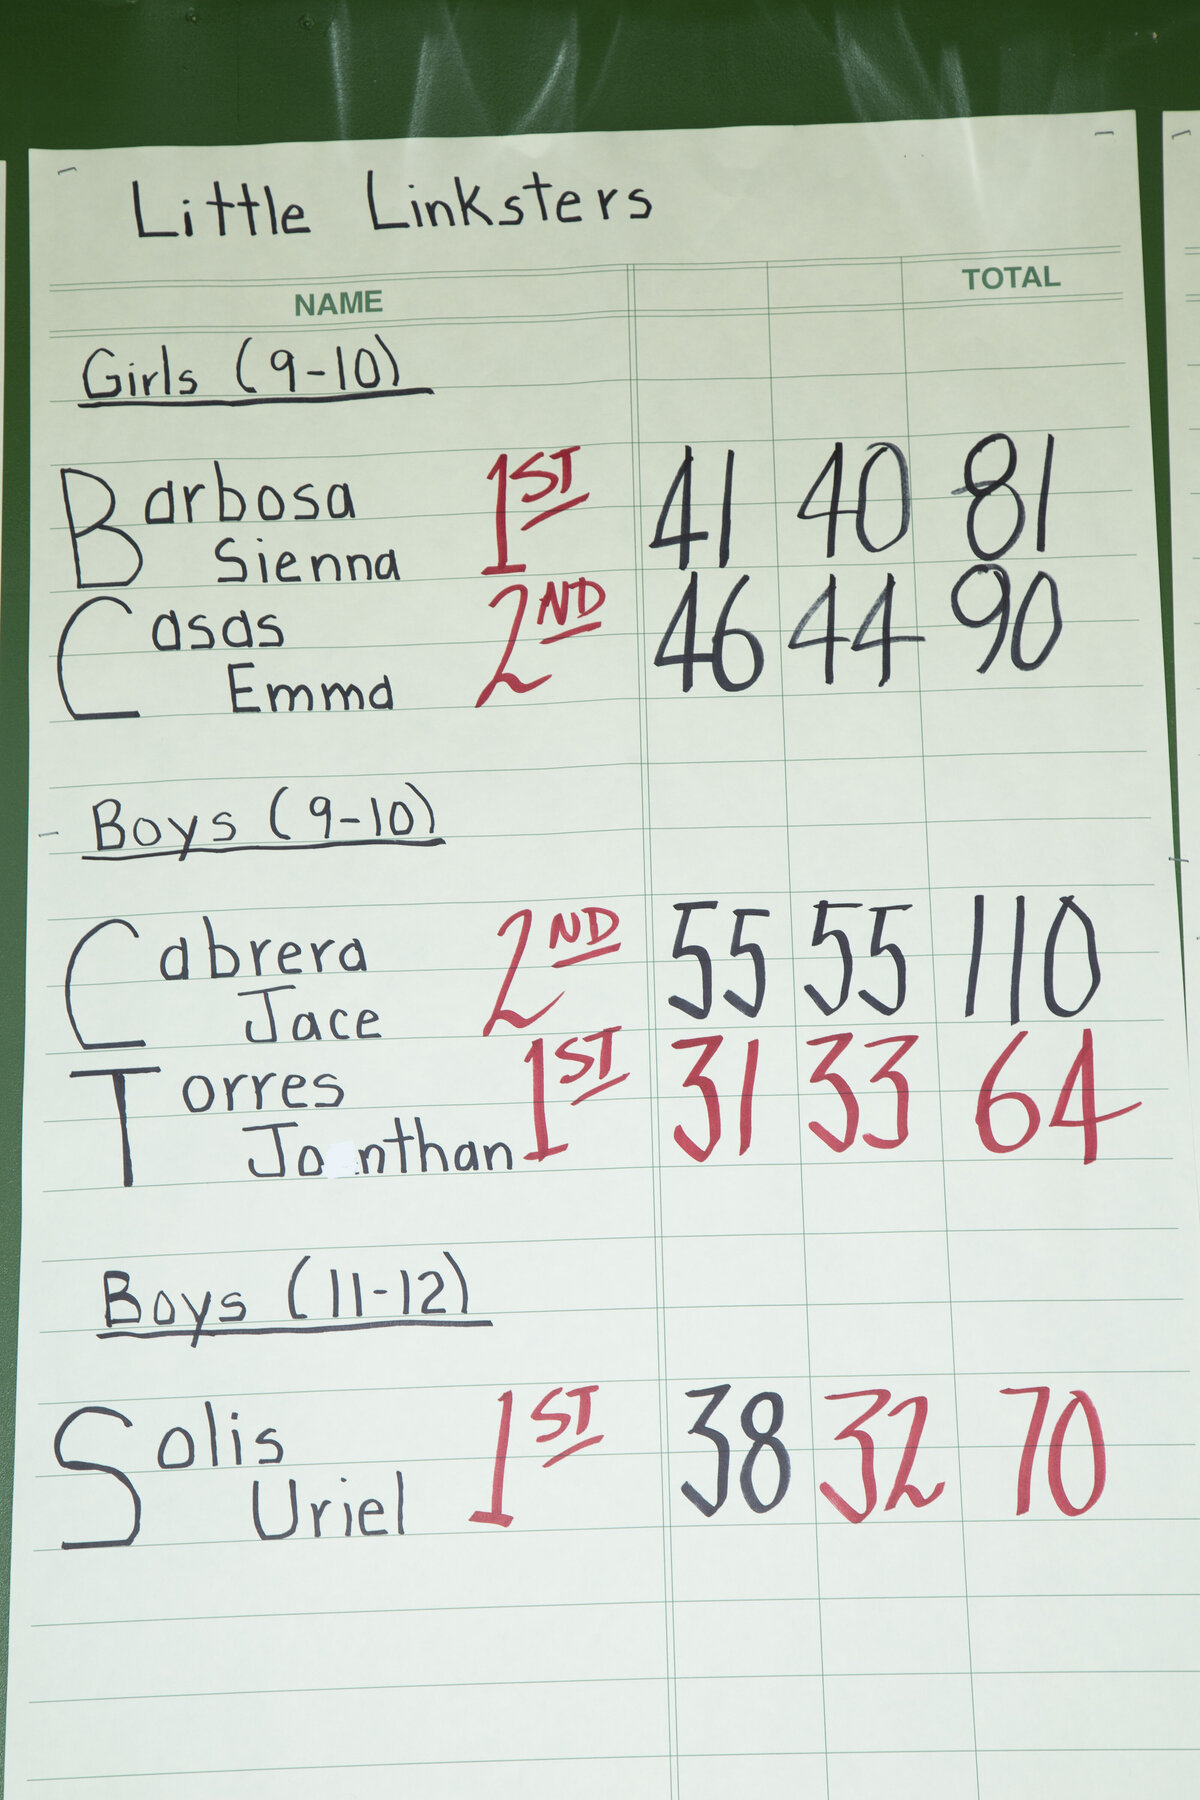 Little Linksters
NAME TOTAL
Girls (9-10)
Barbosa 1ST 41 40 81
Sienna
Casas 2ND 46 44 90
Emma
Boys (9-10)
Cabrera 2ND 55 55 110
Jace
Torres 1ST 31 33 64
Jo nthan
Boys (11-12)
Solis 1ST 38 32 70
Uriel